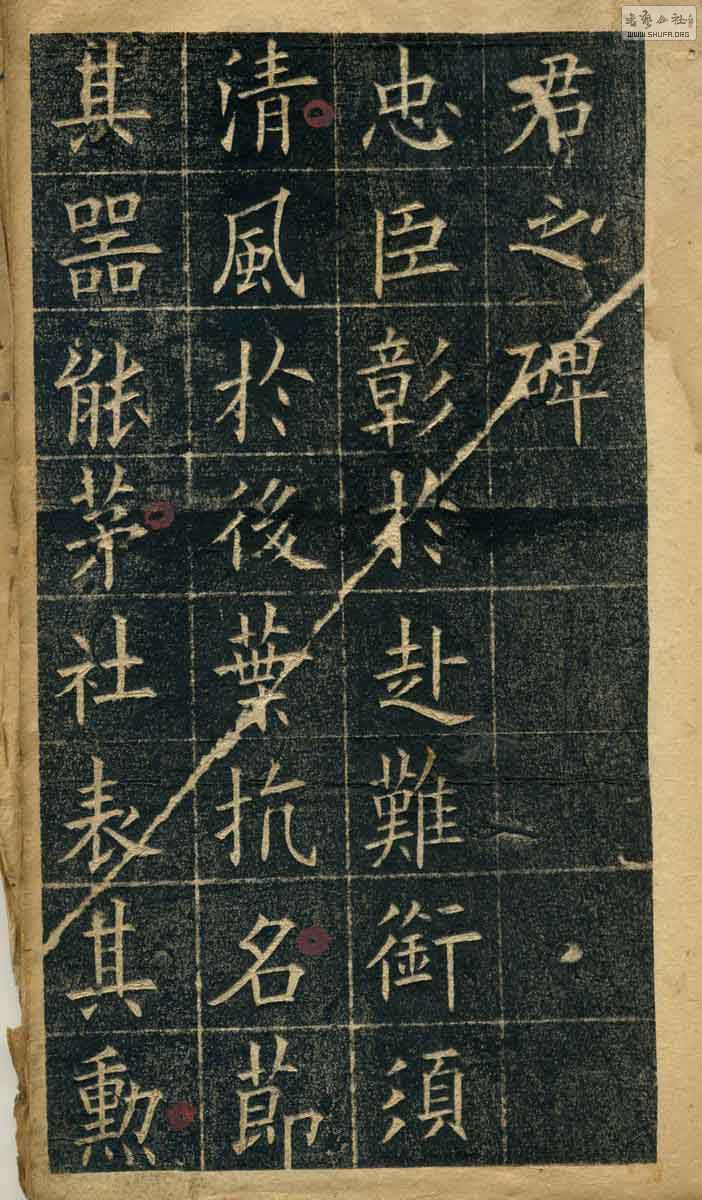 君之碑
忠臣彰於赴難銜須
清風於後葉抗名節
其器能茅社表其勲
书艺公社
WWW.SHUFA.ORG